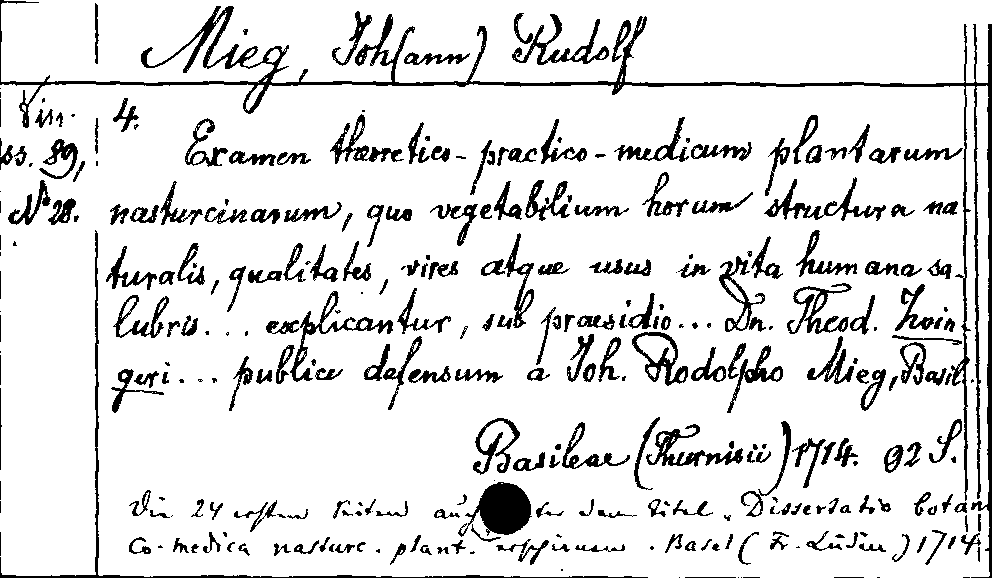 Mieg, Joh(ann) Rudolf
Diss. 89, N° 28.
4.
Examen theoretico-practico-medicum plantarum
nasturcinarum, quo vegetabilium horum structura na-
turalis, qualitates, vires atque usus in vita humana sa-
lubris... explicantur, sub praesidio... Dn. Theod. Zwin-
geri... publice defensum a Joh. Rodolpho Mieg, Basil..
Basileae (Thurnisii) 1714. 92 S.
Die 24 ersten Seiten auch unter dem Titel „Dissertatio botani
co-medica nasturc. plant. erschienen. Basel (Fr. Lüdin) 1714.